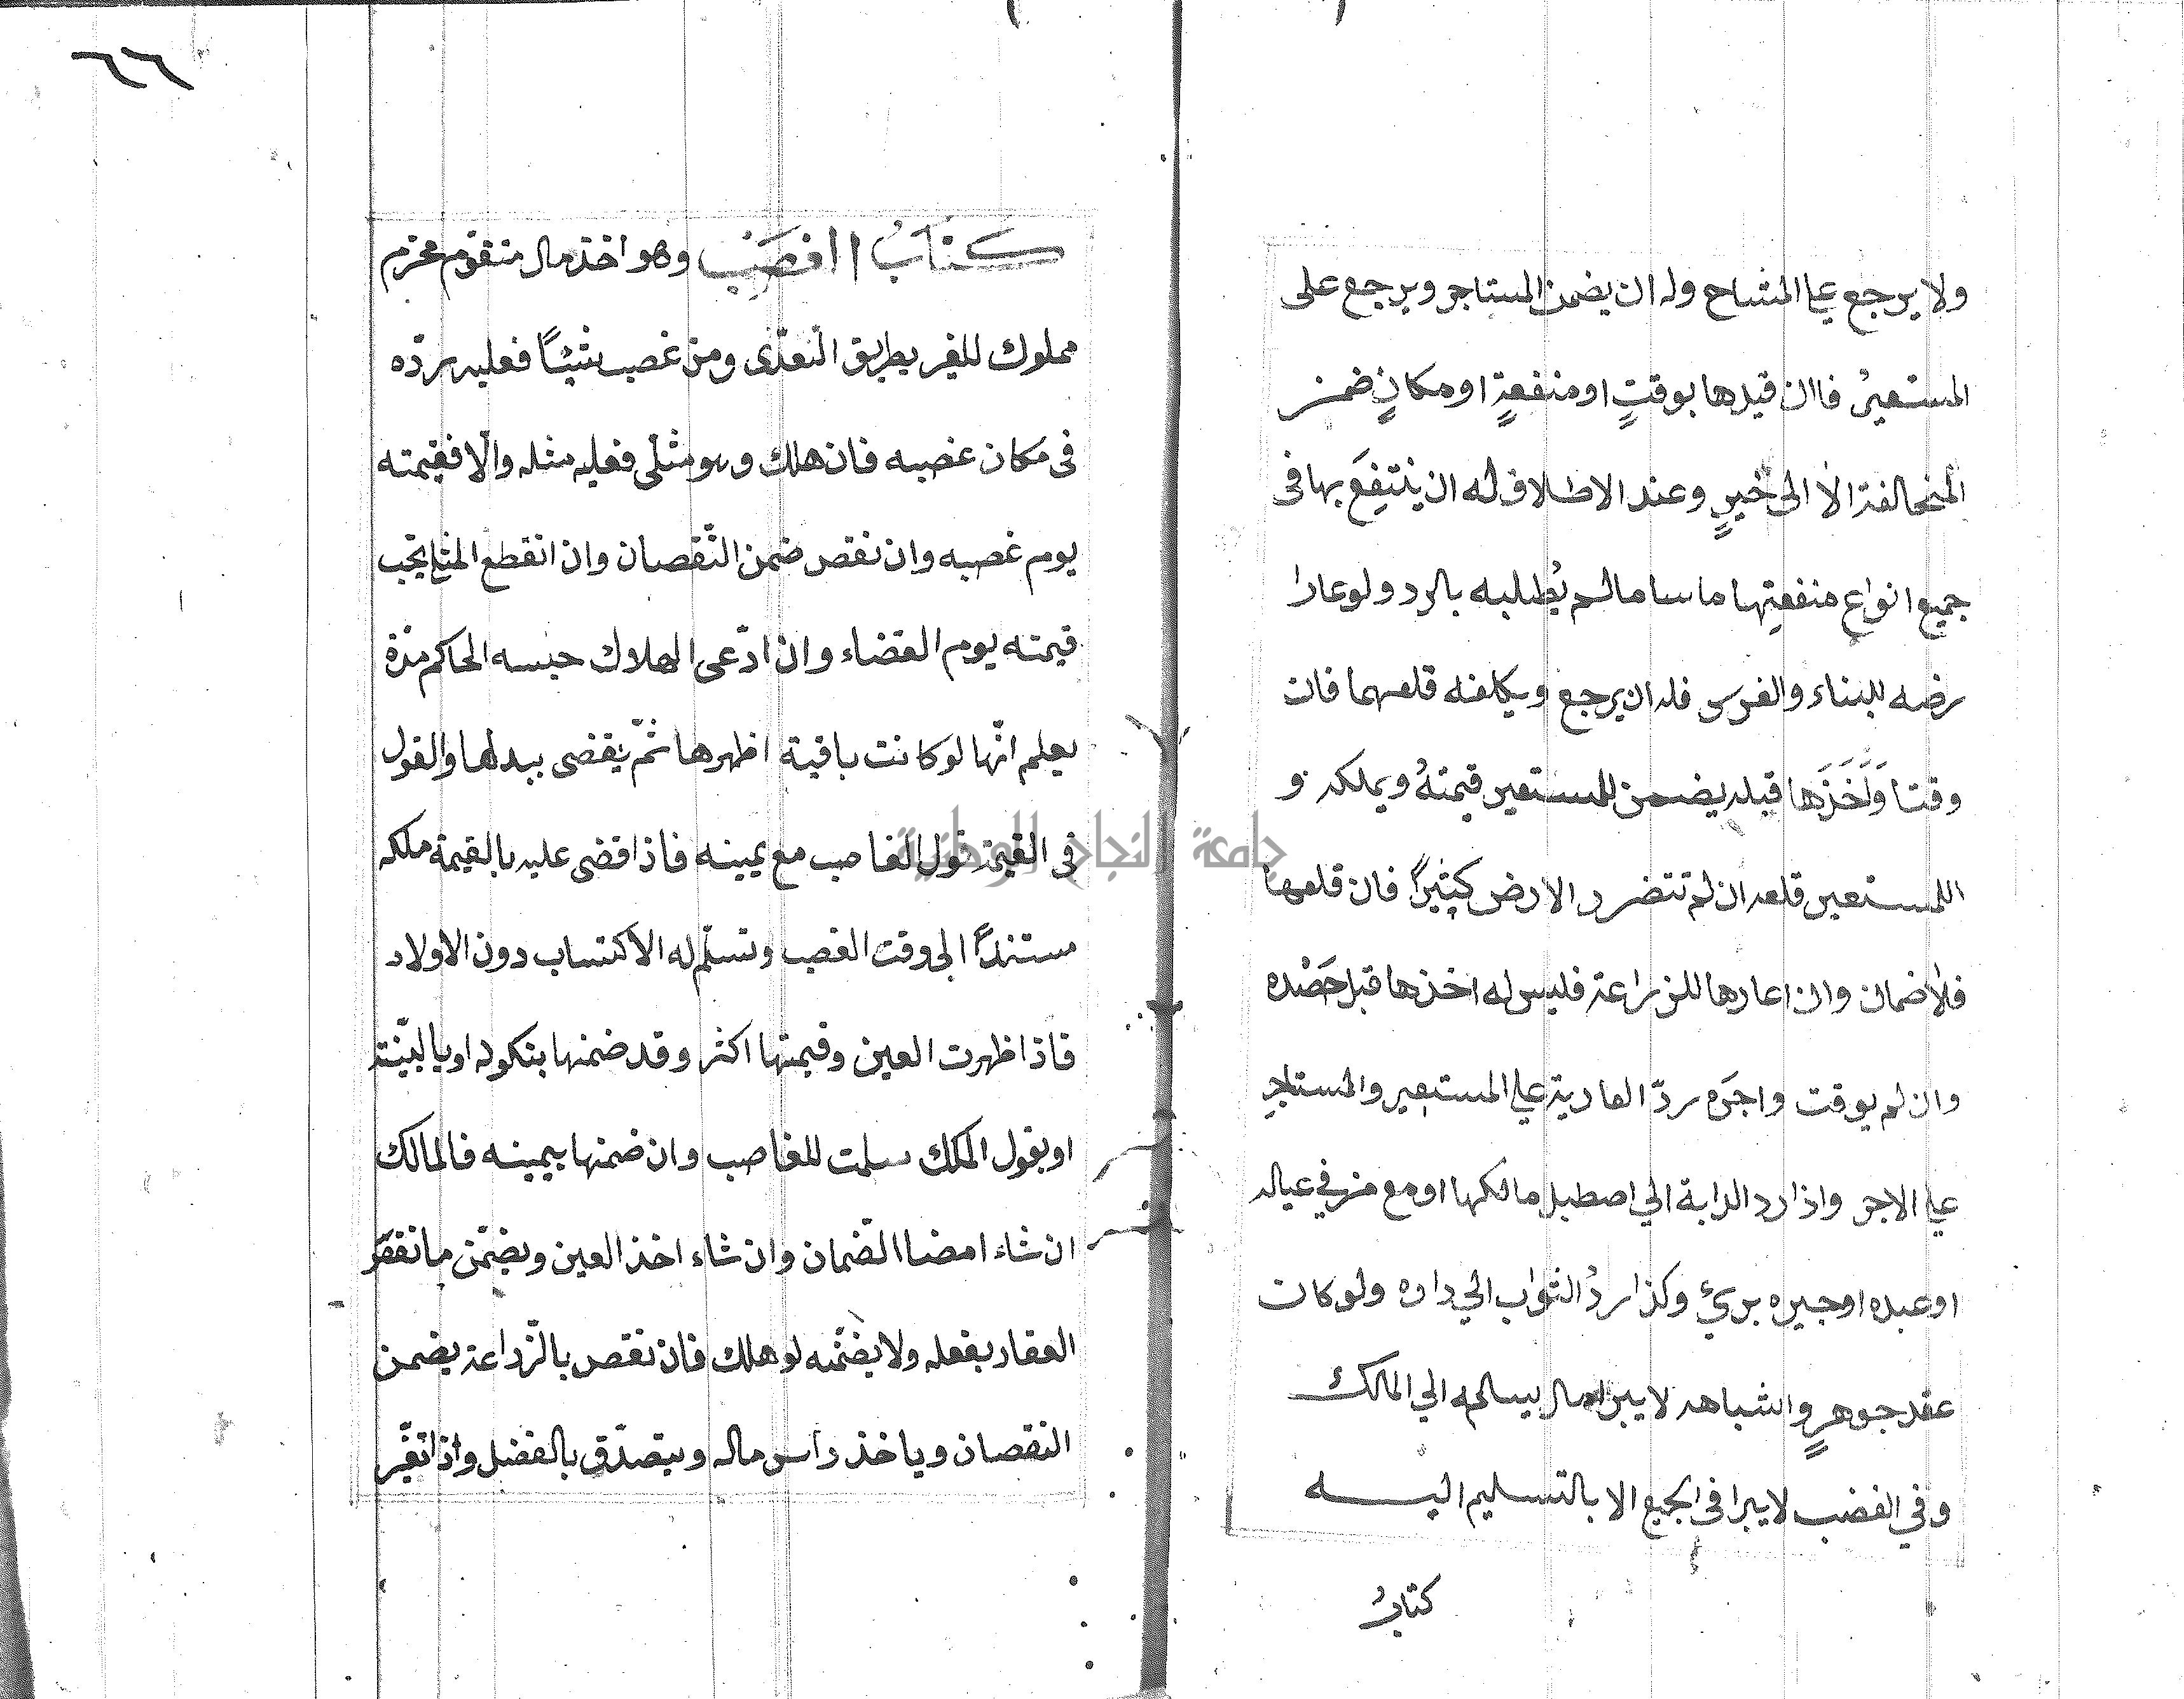 ولا يرجع على المشاح وله ان يضمن المستاجر ويرجع على
المستعير فاان قيدها بوقتٍ او منفعةٍ او مكانٍ ضمن
المخالفة الا الى خيرٍ وعند الاطلاق له ان ينتفِعَ بها فى
جميع انواع منفعتِها ما سا مالم يُطلبه بالرد ولو عارا
رضه للبناء والغرس فله ان يرجع ويكلفه قلعهما فان
وقتا وَاَخَذَها قبله يضمن للمستعير قيمتهُ ويملكه و
اللمستعير قلعه ان لم تتضرر الارض كثيراً فان قلعها
فلا ضمان وان اعارها للزراعة فليس له اخذها قبل حَصْده
وان لم يوقت واجرَه ردّ العارية على المستعير والمستاجِر
على الاجر واذا رد الدابة الي اصطبل مالكها او مع من في عياله
او عبده او جيره برئ وكذا ردُ الثواب الي داره ولو كان
عقد جوهرٍ واشباهه لا يبرا يسلمه الي المالك
وفي الغضب لا يبرا فى الجميع الا بالتسليم اليه
كتابُ
٦٦
كتابُ الغصَبْ وهو اخذ مال متقوّم محترم
مملوك للغير بطريق التعدّى ومن غصب شيئاً فعليه ردّه
فى مكان غصبه فان هلك وهو مثلّى فعليه مثله والّا فقيمته
يوم غصبه وان نقص ضمن النّقصان وان انقطع المثل يجب
قيمته يوم القضاء وان ادّعى الهلاك حبسه الحاكم مدّة
يعلم انّها لو كانت باقية اظهرها ثمّ يقضى ببدلها والقول
فى القيمة قول الغاصب مع يمينه فاذا قضى عليه بالقيمة ملكه
مستنداً الى وقت الغصب وتسلّم له الاكتساب دون الاولاد
فاذا ظهرت العين وقيمتها اكثر وقد ضمنها بنكوله او بالبيّنة
او بقول المكلك سلمت للغاصب وان ضمنها بيمينه فالمالك
ان شاء امضا الضّمان وان شاء اخذ العين ويضمّن ما نقص
العقار بفعله ولا يضمّنه لو هلك فان نقص بالزّراعة يضمن
النقصان وياخذ راس ماله ويتصدّق بالفضل واذا تغيّر
جامعة النجاح الوطنية